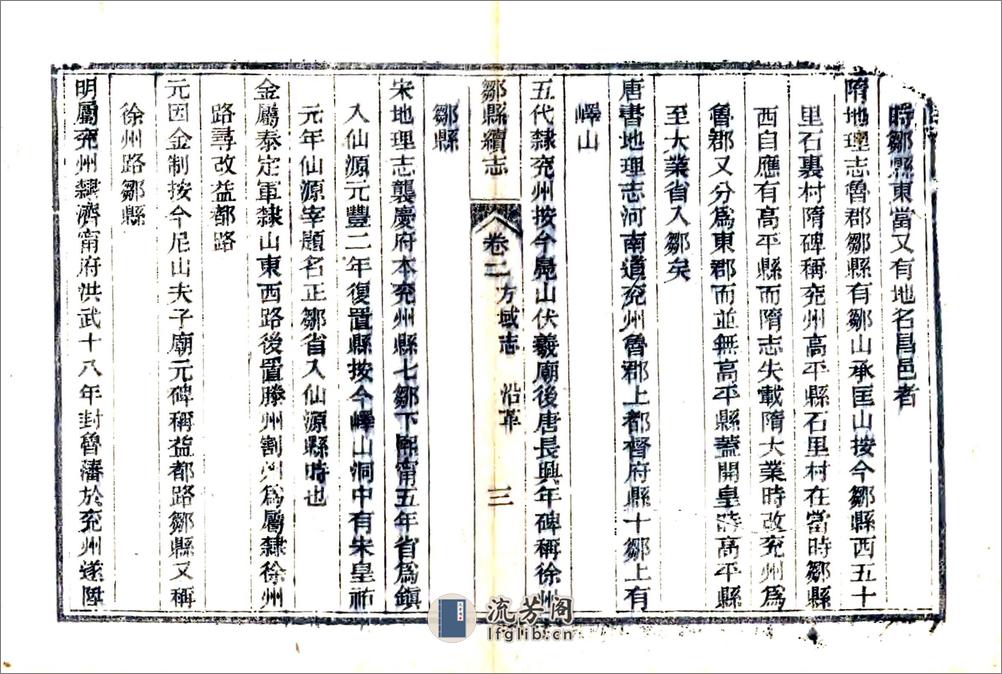 時鄒縣東當又有地名昌邑者
隋地理志魯郡鄒縣有鄒山承匡山按今鄒縣西五十
里石裏村隋碑稱兗州高平縣石里村在當時鄒縣
西自應有高平縣而隋志失載隋大業時改兗州為
魯郡又分為東郡而並無高平縣蓋開皇時高平縣
至大業省入鄒矣
唐書地理志河南道兗州魯郡上都督府縣十鄒上有
嶧山
五代隸兗州按今鳧山伏羲廟後唐長興年碑稱徐州
鄒縣續志 卷二 方域志 沿革 三
鄒縣
宋地理志襲慶府本兗州縣七鄒下熙甯五年省為鎮
入仙源元豐二年復置縣按今嶧山洞中有宋皇祐
元年仙源宰題名正鄒省入仙源縣時也
金屬泰定軍隸山東西路後置滕州割州為屬隸徐州
路尋改益都路
元因金制按今尼山夫子廟元碑稱益都路鄒縣又稱
徐州路鄒縣
明屬兗州隸濟甯府洪武十八年封魯藩於兗州遂陞
流芳阁
lfglib.cn